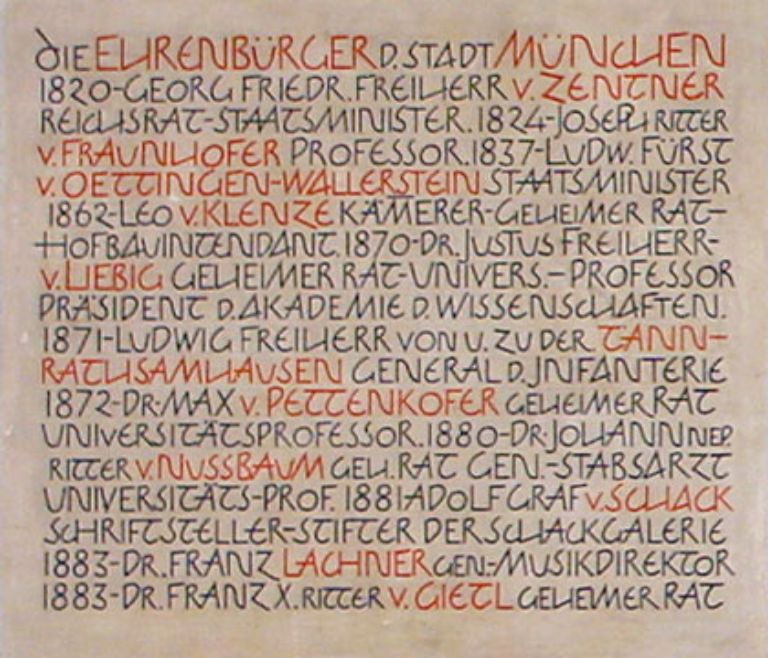 DIE EHRENBÜRGER D. STADT MÜNCHEN
1820-GEORG FRIEDR. FREIHERR v. ZENTNER
REICHSRAT-STAATSMINISTER. 1824-JOSEPH RITTER
v. FRAUNHOFER PROFESSOR. 1837-LUDW. FÜRST
v. OETTINGEN-WALLERSTEIN STAATSMINISTER
1862-LEO v. KLENZE KAM̅ERER-GEHEIMER RAT-
HOFBAUINTENDANT. 1870-DR. JUSTUS FREIHERR-
v. LIEBIG GEHEIMER RAT-UNIVERS.-PROFESSOR
PRÄSIDENT D. AKADEMIE D. WISSENSCHAFTEN.
1871-LUDWIG FREIHERR VON U. ZU DER TANN-
RATHSAMHAUSEN GENERAL D. INFANTERIE
1872-DR. MAX v. PETTENKOFER GEHEIMER RAT
UNIVERSITÄTSPROFESSOR. 1880-DR. JOHANN NEP.
RITTER v. NUSSBAUM GEH. RAT GEN.-STABSARZT
UNIVERSITÄTS-PROF. 1881 ADOLF GRAF v. SCHACK
SCHRIFTSTELLER-STIFTER DER SCHACKGALERIE
1883-DR. FRANZ LACHNER GEN.-MUSIKDIREKTOR
1883-DR. FRANZ X. RITTER v. GIETL GEHEIMER RAT